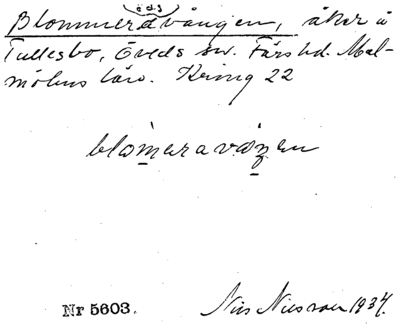 öds
Blommeravången, åker å
Tullesbo, Öveds sn. Färs hd. Mal-
möhus län. Kring 22
blomeravåŋen
Nr 5603. Nils Nilsson 1934.